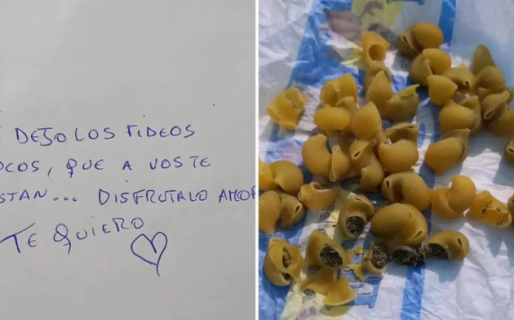 DEJO LOS FIDEOS
OCOS, QUE A VOS TE
STAN... DISFRUTALO AMOR
TE QUIERO